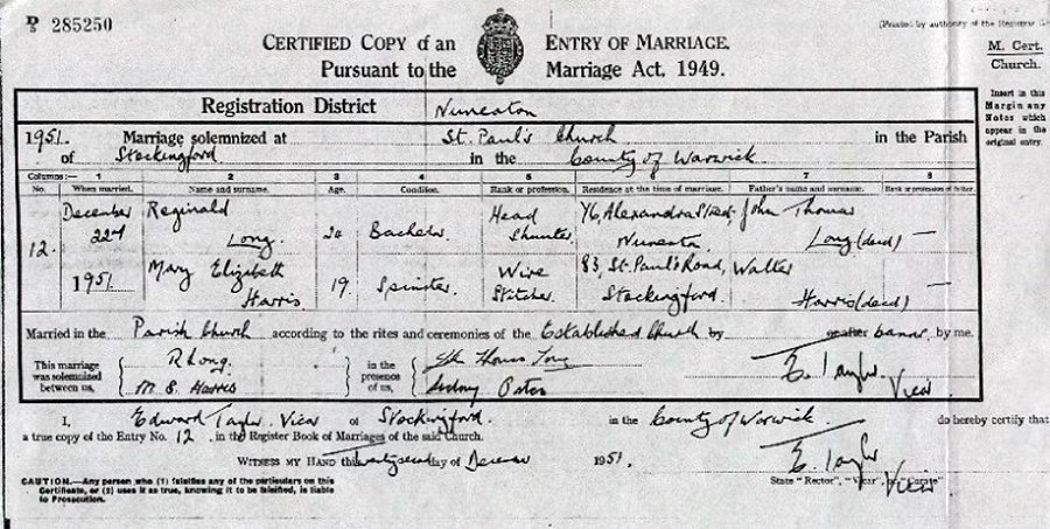 285250
(Printed by authority of the Registrar
CERTIFIED COPY of an ENTRY OF MARRIAGE.
Pursuant to the Marriage Act, 1949.
M. Cert.
Church.
Insert in this
Margin any
Notes which
appear in the
original entry.
Registration District Nuneaton
1951. Marriage solemnized at St. Paul's Church in the Parish
of Stockingford in the County of Warwick
Columns:— 1 2 3 4 5 6 7 8
No. When married. Name and surname. Age. Condition. Rank or profession. Residence at the time of marriage. Father's name and surname. Rank or profession of father.
12. December 22nd 1951. Reginald Long. 24 Bachelor Head Shunter Alexandra Street, Nuneaton. John Thomas Long (dead) —
Mary Elizabeth Harris 19. Spinster. Wire Stitcher. 83, St. Paul's Road, Stockingford. Walter Harris (dead) —
Married in the Parish Church according to the rites and ceremonies of the Established Church by or after banns by me.
This marriage was solemnized between us, R Long. M. E. Harris in the presence of us, John Thomas Long Sydney E. Taylor Vicar
I, Edward Taylor Vicar of Stockingford. in the County of Warwick do hereby certify that
a true copy of the Entry No. 12 , in the Register Book of Marriages of the said Church.
WITNESS MY HAND this twenty second day of December 1951. E. Taylor
Vicar
State "Rector", "Vicar", or "Curate"
CAUTION.—Any person who (1) falsifies any of the particulars on this
Certificate, or (2) uses it as true, knowing it to be falsified, is liable
to Prosecution.